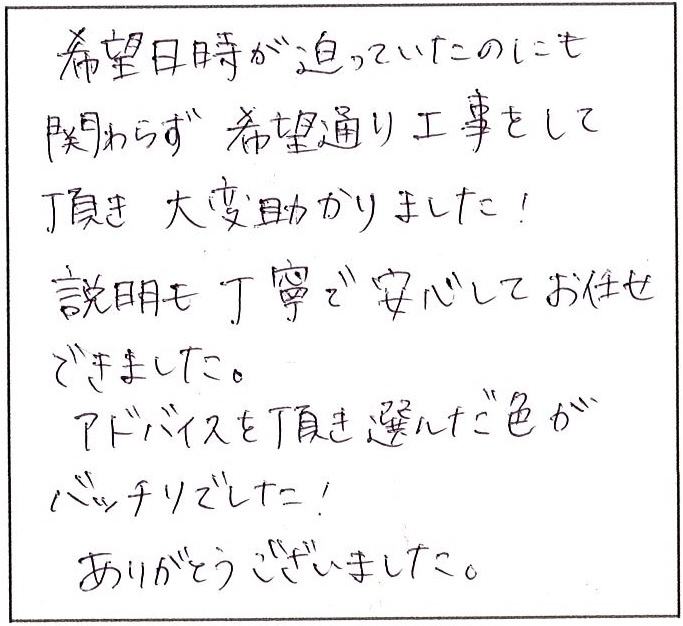 希望日時が迫っていたのにも
関わらず 希望通り工事をして
頂き 大変助かりました!
説明も丁寧で安心してお任せ
できました。
アドバイスを頂き選んだ色が
バッチリでした!
ありがとうございました。